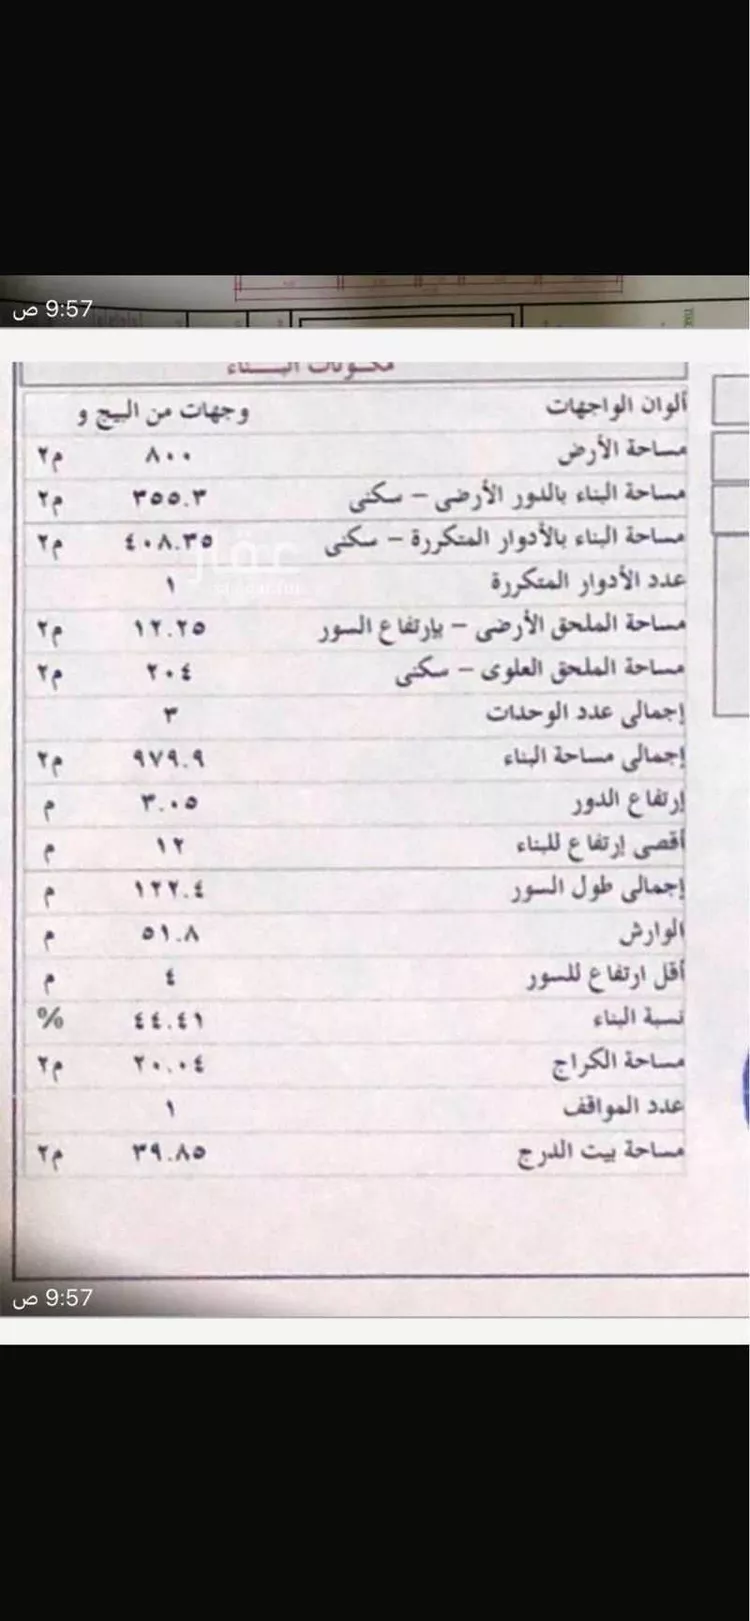 9:57 ص
مكونات البناء
ألوان الواجهات وجهات من البيج و
مساحة الأرض ٨٠٠ م٢
مساحة البناء بالدور الأرضى – سكنى ٣٥٥.٣ م٢
مساحة البناء بالأدوار المتكررة – سكنى ٤٠٨.٣٥ م٢
عقار
عدد الأدوار المتكررة ١
مساحة الملحق الأرضى – بإرتفاع السور ١٢.٢٥ م٢
مساحة الملحق العلوى – سكنى ٢٠٤ م٢
إجمالى عدد الوحدات ٣
إجمالى مساحة البناء ٩٧٩.٩ م٢
إرتفاع الدور ٣.٠٥ م
أقصى إرتفاع للبناء ١٢ م
إجمالى طول السور ١٢٢.٤ م
الوارش ٥١.٨ م
أقل ارتفاع للسور ٤ م
نسبة البناء ٤٤.٤١ %
مساحة الكراج ٢٠.٠٤ م٢
عدد المواقف ١
مساحة بيت الدرج ٣٩.٨٥ م٢
9:57 ص